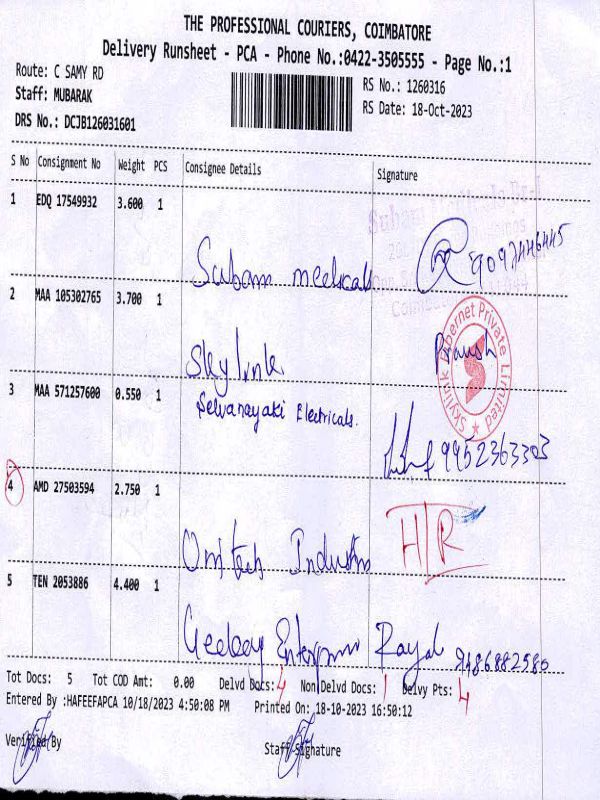 THE PROFESSIONAL COURIERS, COIMBATORE
Delivery Runsheet - PCA - Phone No.:0422-3505555 - Page No.:1
Route: C SAMY RD
RS No.: 1260316
Staff: MUBARAK
RS Date: 18-Oct-2023
DRS No.: DCJB126031601
S No Consignment No Weight PCS Consignee Details Signature
1 EDQ 17549932 3.600 1
Subam medicals
2 MAA 105302765 3.700 1
Skylink
Skylink Fibernet Private Limited
3 MAA 571257600 0.550 1
Selvanayaki Electricals.
9952363303
4 AMD 27503594 2.750 1
H/R
5 TEN 2053886 4.400 1
Tot Docs: 5 Tot COD Amt: 0.00 Delvd Docs: 4 Non Delvd Docs: 1 Delvy Pts: 4
Entered By :HAFEEFAPCA 10/18/2023 4:50:08 PM Printed On: 18-10-2023 16:50:12
Verified By Staff Signature